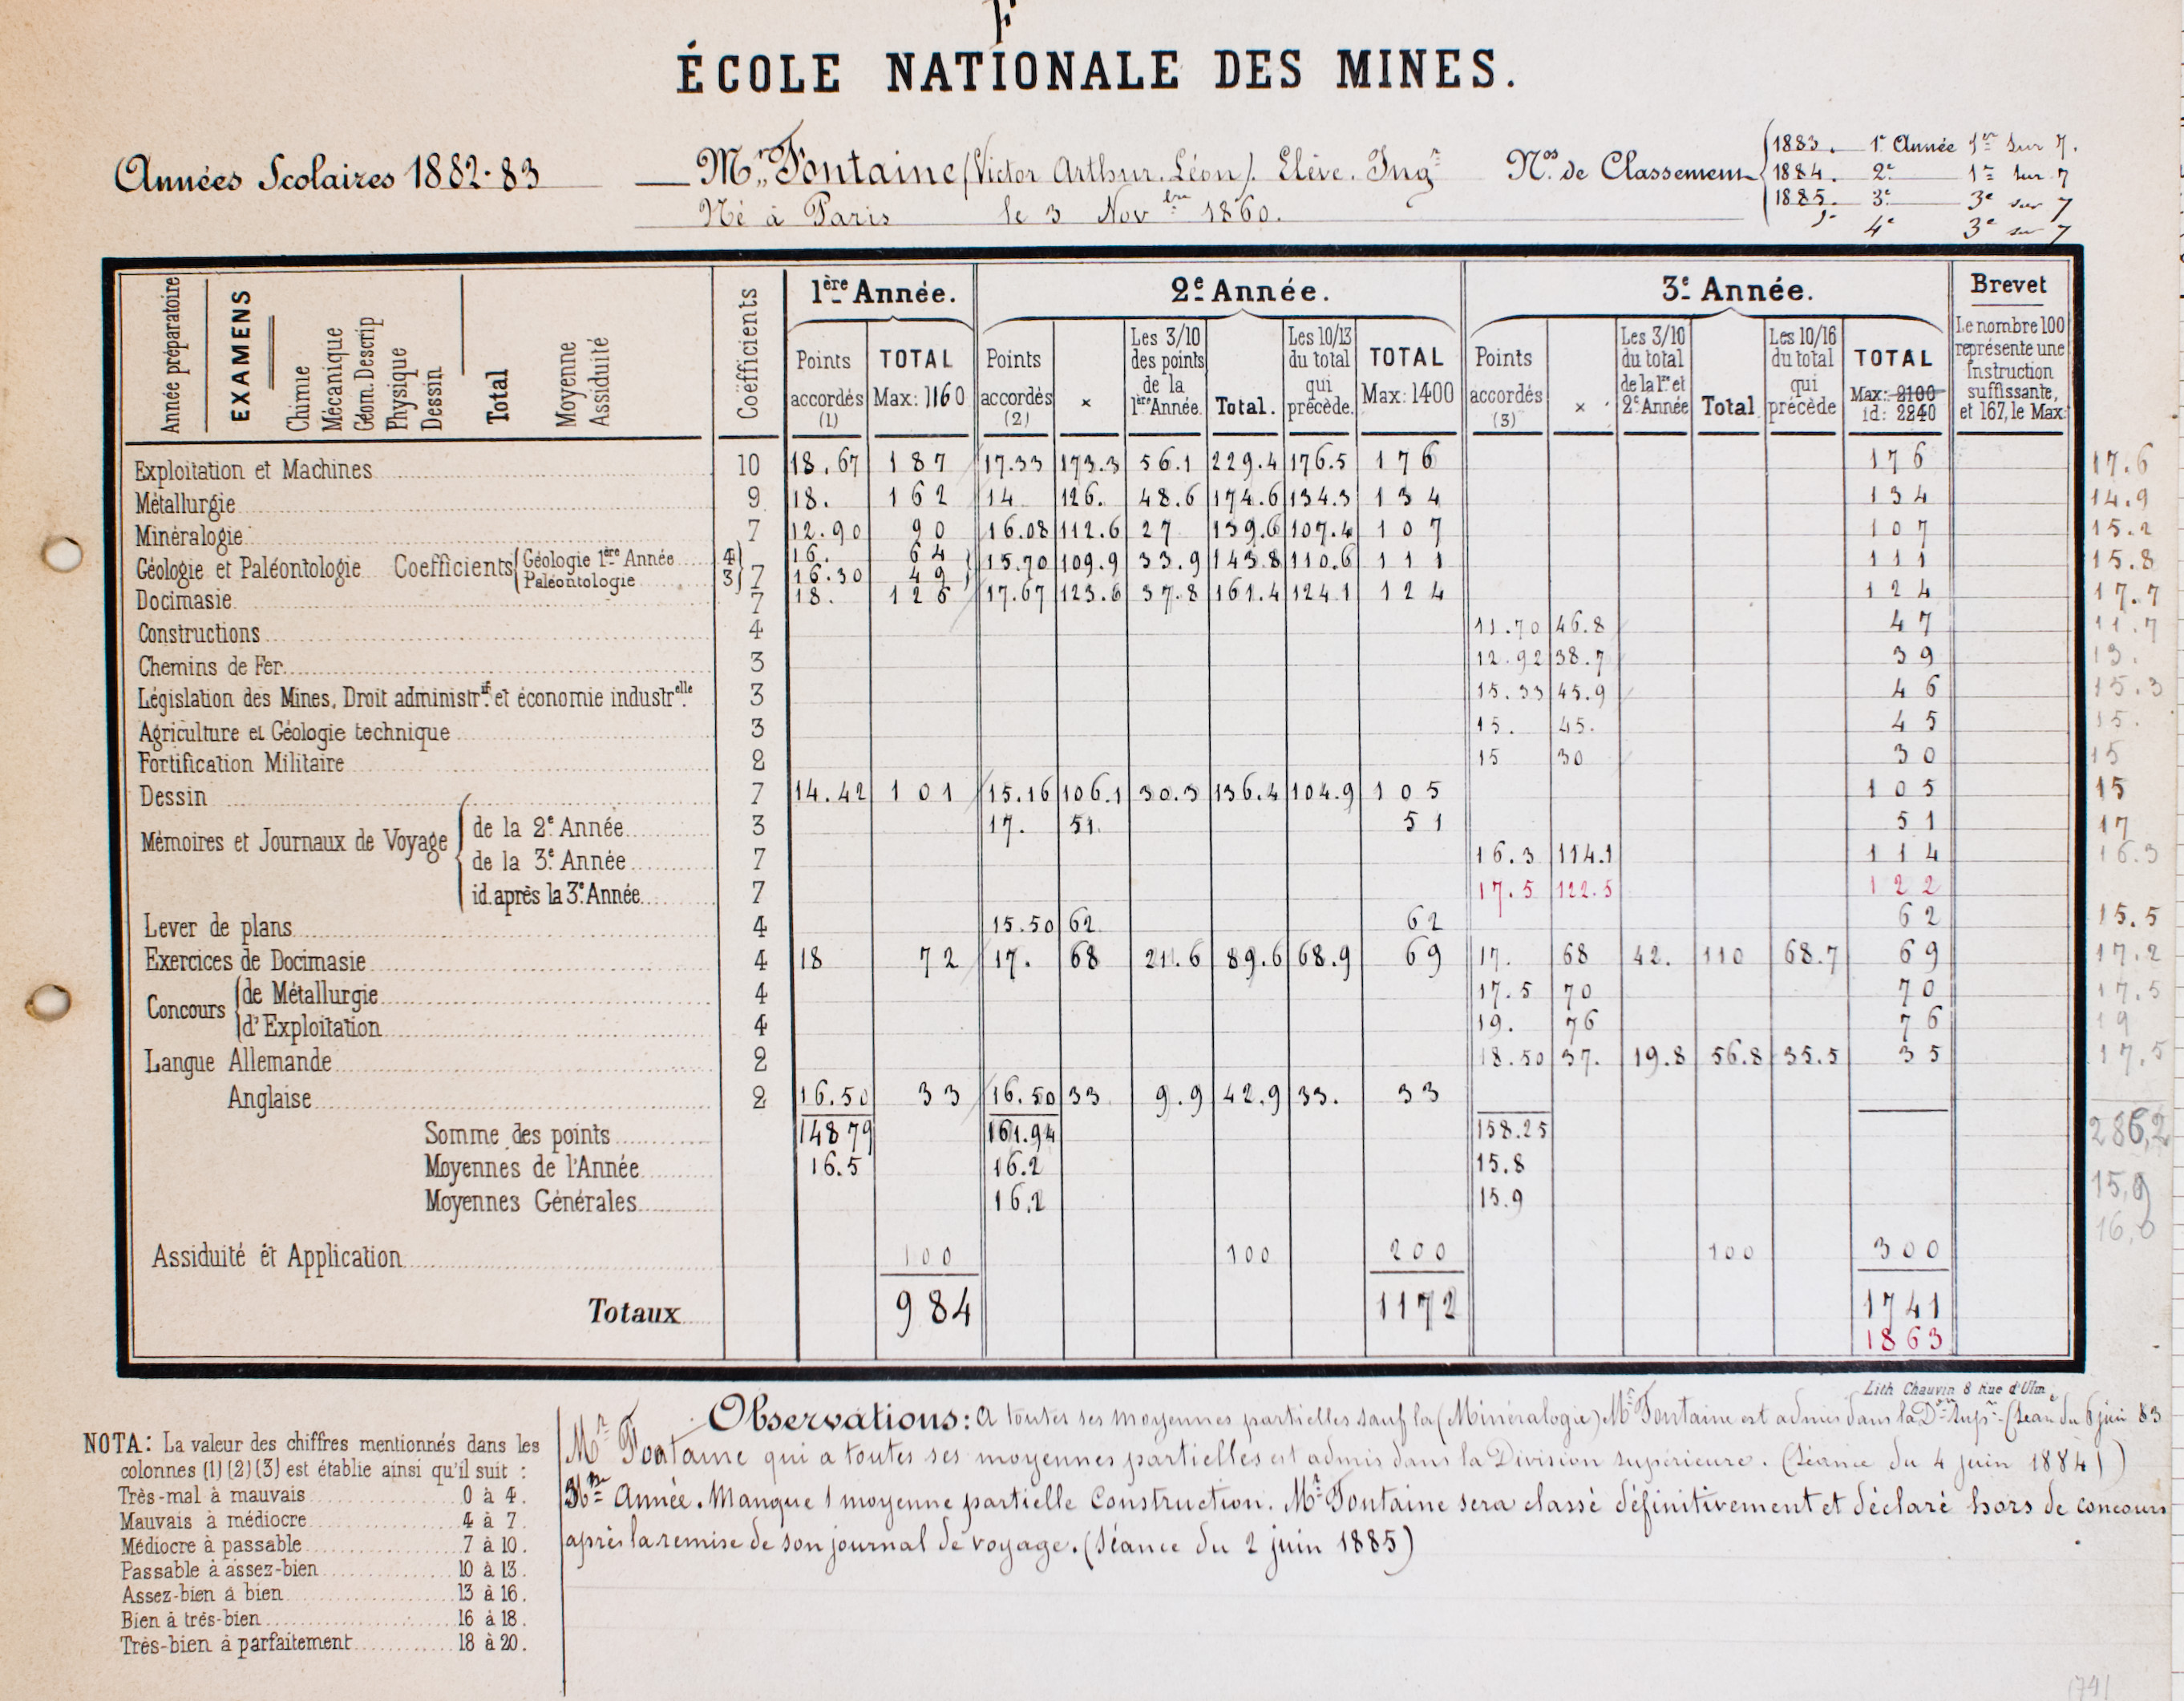 F
ÉCOLE NATIONALE DES MINES.
Années Scolaires 1882-83
Mr. Fontaine (Victor Arthur. Léon). Elève. Ingr
Né à Paris le 3 Novbre 1860.
Nos. de Classement
1883. 1e Année 1er Sur 7.
1884. 2e 1er Sur 7
1885. 3e 3e sur 7
4e 3e sur 7
Année préparatoire
EXAMENS
Chimie
Mécanique
Géom. Descrip
Physique
Dessin
Total
Moyenne
Assiduité
Coëfficients
1ère Année. 2e Année. 3e Année. Brevet
Points accordés (1) TOTAL Max: 1160
Points accordés (2) × Les 3/10 des points de la 1ère Année. Total. Les 10/13 du total qui précède. TOTAL Max: 1400
Points accordés (3) × Les 3/10 du total de la 1re et 2e Année Total Les 10/16 du total qui précède TOTAL Max: 2100 id: 2240
Le nombre 100 représente une Instruction suffissante, et 167, le Max:
Exploitation et Machines 10 18.67 187 17.33 173.3 56.1 229.4 176.5 176 176 17.6
Métallurgie 9 18. 162 14 126. 48.6 174.6 134.3 134 134 14.9
Minéralogie 7 12.90 90 16.08 112.6 27 139.6 107.4 107 107 15.2
Géologie et Paléontologie Coefficients { Géologie 1ère Année 4 16. 64
Paléontologie 3 } 7 16.30 49 15.70 109.9 33.9 143.8 110.6 111 111 15.8
Docimasie 7 18. 126 17.67 123.6 37.8 161.4 124.1 124 124 17.7
Constructions 4 11.70 46.8 47 11.7
Chemins de Fer 3 12.92 38.7 39 13.
Législation des Mines, Droit administrif. et économie industrelle. 3 15.33 45.9 46 15.3
Agriculture et Géologie technique 3 15. 45. 45 15.
Fortification Militaire 2 15 30 30 15
Dessin 7 14.42 101 15.16 106.1 30.3 136.4 104.9 105 105 15
Mémoires et Journaux de Voyage { de la 2e Année 3 17. 51. 51 51 17
de la 3e Année 7 16.3 114.1 114 16.3
id. après la 3e Année 7 17.5 122.5 122
Lever de plans 4 15.50 62 62 62 15.5
Exercices de Docimasie 4 18 72 17. 68 21.6 89.6 68.9 69 17. 68 42. 110 68.7 69 17.2
Concours { de Métallurgie 4 17.5 70 70 17.5
d'Exploitation 4 19. 76 76 19
Langue Allemande 2 18.50 37. 19.8 56.8 35.5 35 17.5
Anglaise 2 16.50 33 16.50 33 9.9 42.9 33. 33
Somme des points 148 79 161.94 158.25 286,2
Moyennes de l'Année 16.5 16.2 15.8 15,9
Moyennes Générales 16.2 15.9 16,0
Assiduité et Application 100 100 200 100 300
Totaux 984 1172 1741
1863
Lith Chauvin 8 Rue d'Ulm
Observations: A toutes ses moyennes partielles sauf la (Minéralogie) Mr Fontaine est admis dans la Don Supre. (Séance du 6 juin 83
Mr Fontaine qui a toutes ses moyennes partielles est admis dans la Division supérieure. (Séance du 4 juin 1884)
3me Année. Manque 1 moyenne partielle Construction. Mr Fontaine sera classé définitivement et déclaré hors de concours
après la remise de son journal de voyage. (Séance du 2 juin 1885)
NOTA: La valeur des chiffres mentionnés dans les
colonnes (1) (2) (3) est établie ainsi qu'il suit :
Très-mal à mauvais 0 à 4.
Mauvais à médiocre 4 à 7.
Médiocre à passable 7 à 10.
Passable à assez-bien 10 à 13.
Assez-bien à bien 13 à 16.
Bien à très-bien 16 à 18.
Très-bien à parfaitement 18 à 20.